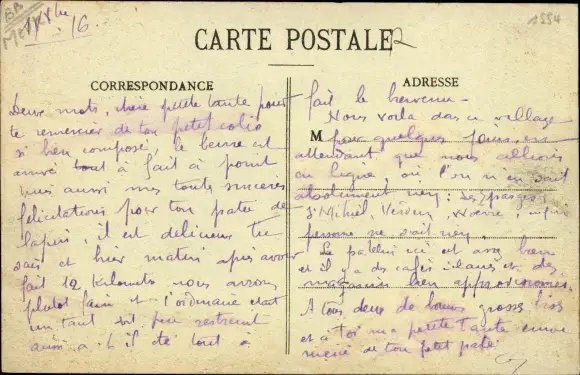 16.
1554
CARTE POSTALE
CORRESPONDANCE
ADRESSE
Deux mots, chère petite tante pour
te remercier de ton petit colis
si bien composé, le beurre est
arrivé tout à fait à point
mais aussi mes toutes sincères
félicitations pour ton pâté de
lapin, il est délicieux tu
sais et hier matin après avoir
fait 12 kilomètres nous avions
plutôt faim et l'ordinaire était
un tant soit peu restreint
aussi a-t-il été tout à
fait le bienvenu -
Nous voilà dans ce village
M
pour quelques jours, en
attendant que nous allions
en ligne, où l'on n'en sait
absolument rien : les
St Mihiel, Verdun, Woevre,
personne ne sait rien.
Le patelin ici est assez bien
et il y a des cafés et des
magasins bien approvisionnés.
A tous deux de bons gros bises
et à toi ma petite tante
de ton petit pâté